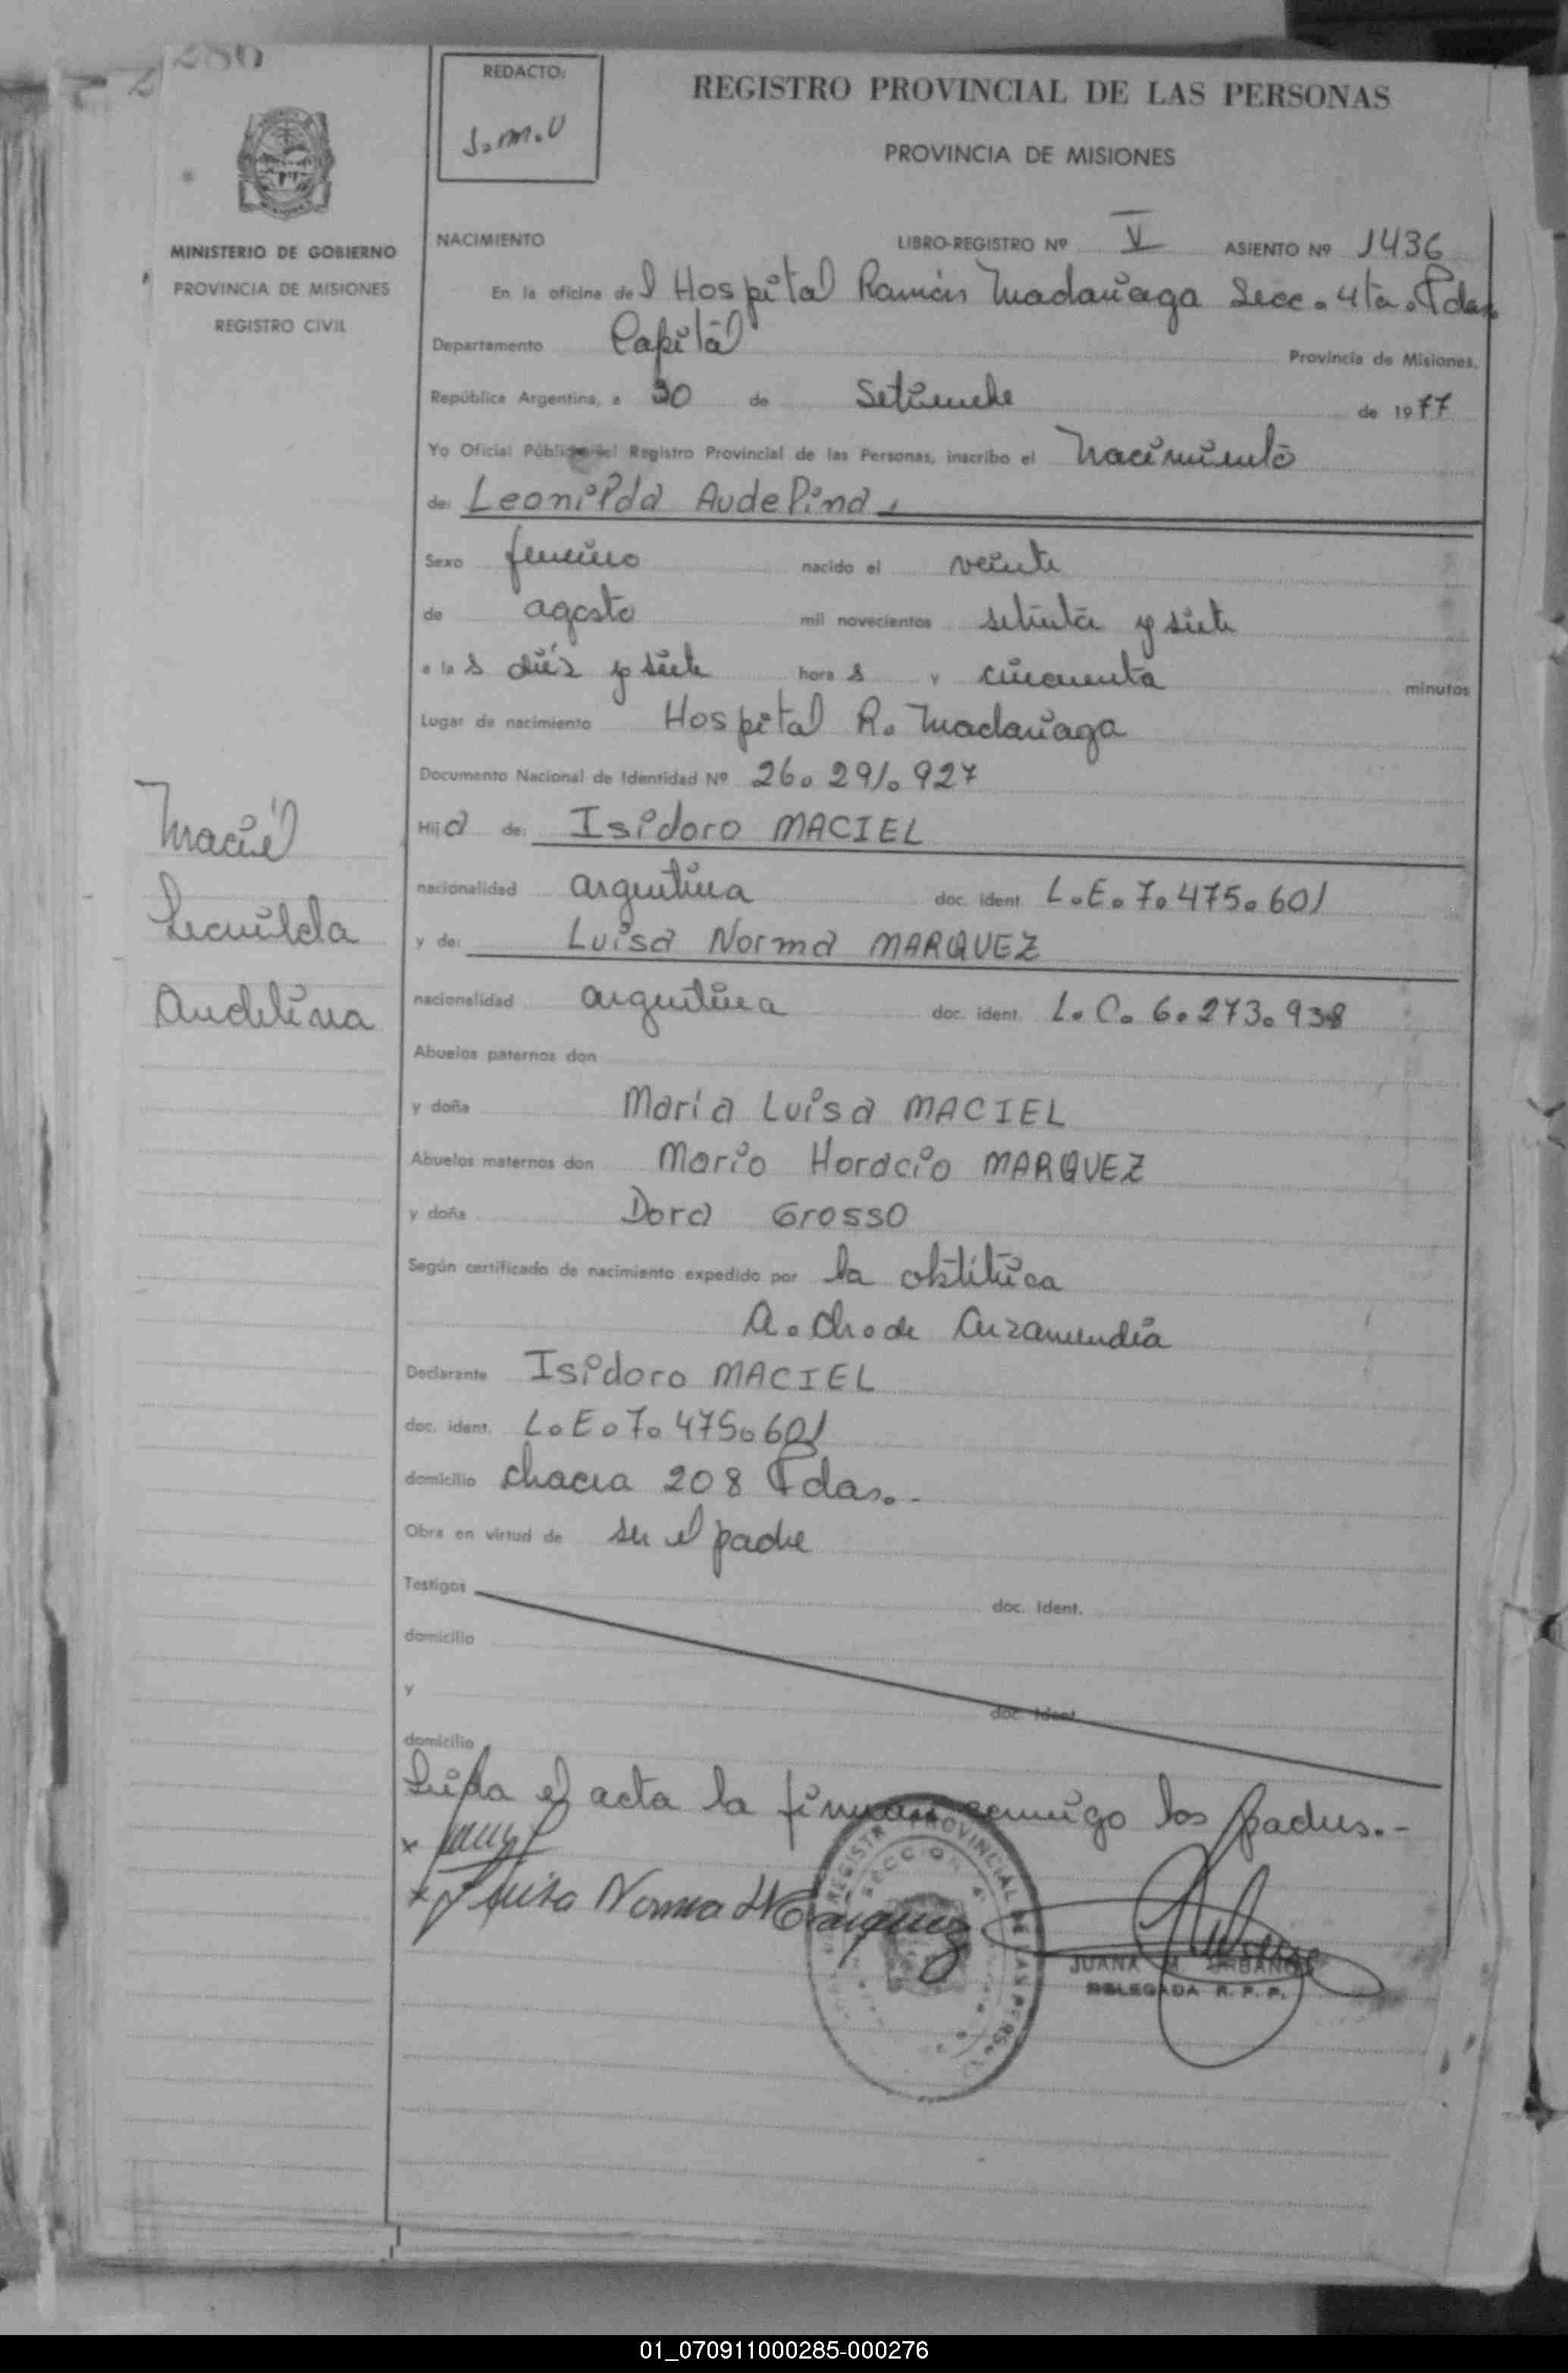 286
REDACTO:
J.M.U
REGISTRO PROVINCIAL DE LAS PERSONAS
PROVINCIA DE MISIONES
MINISTERIO DE GOBIERNO
PROVINCIA DE MISIONES
REGISTRO CIVIL
NACIMIENTO LIBRO-REGISTRO Nº V ASIENTO Nº 1436
En la oficina del Hospital Ramón Madariaga Secc. 4ta. Pdas.
Departamento Capital Provincia de Misiones,
República Argentina, a 30 de Setiembre de 1977
Yo Oficial Público del Registro Provincial de las Personas, inscribo el nacimiento
de: Leonilda Audelina.
Sexo femenino nacido el veinte
de agosto mil novecientos setenta y siete
a las diéz y siete horas y cincuenta minutos
Lugar de nacimiento Hospital R. Madariaga
Documento Nacional de Identidad Nº 26.291.927
Hija de: Isidoro MACIEL
nacionalidad argentina doc. ident. L.E. 7.475.601
y de: Luisa Norma MARQUEZ
nacionalidad argentina doc. ident. L.C. 6.273.938
Maciel
Leonilda
Audelina
Abuelos paternos don
y doña María Luisa MACIEL
Abuelos maternos don Mario Horacio MARQUEZ
y doña Dora Grosso
Según certificado de nacimiento expedido por la obstétrica
A. Ch. de Arizamendia
Declarante Isidoro MACIEL
doc. ident. L.E. 7.475.601
domicilio chacra 208 Pdas.-
Obra en virtud de ser el padre
Testigos doc. Ident.
domicilio
y doc. Ident.
domicilio
Leida el acta la firman conmigo los padres.-
x
x Luisa Norma Marquez
REGISTRO PROVINCIAL DE LAS PERSONAS
SECCION 4
JUANA M. URBANO
DELEGADA R. P. P.
01_070911000285-000276